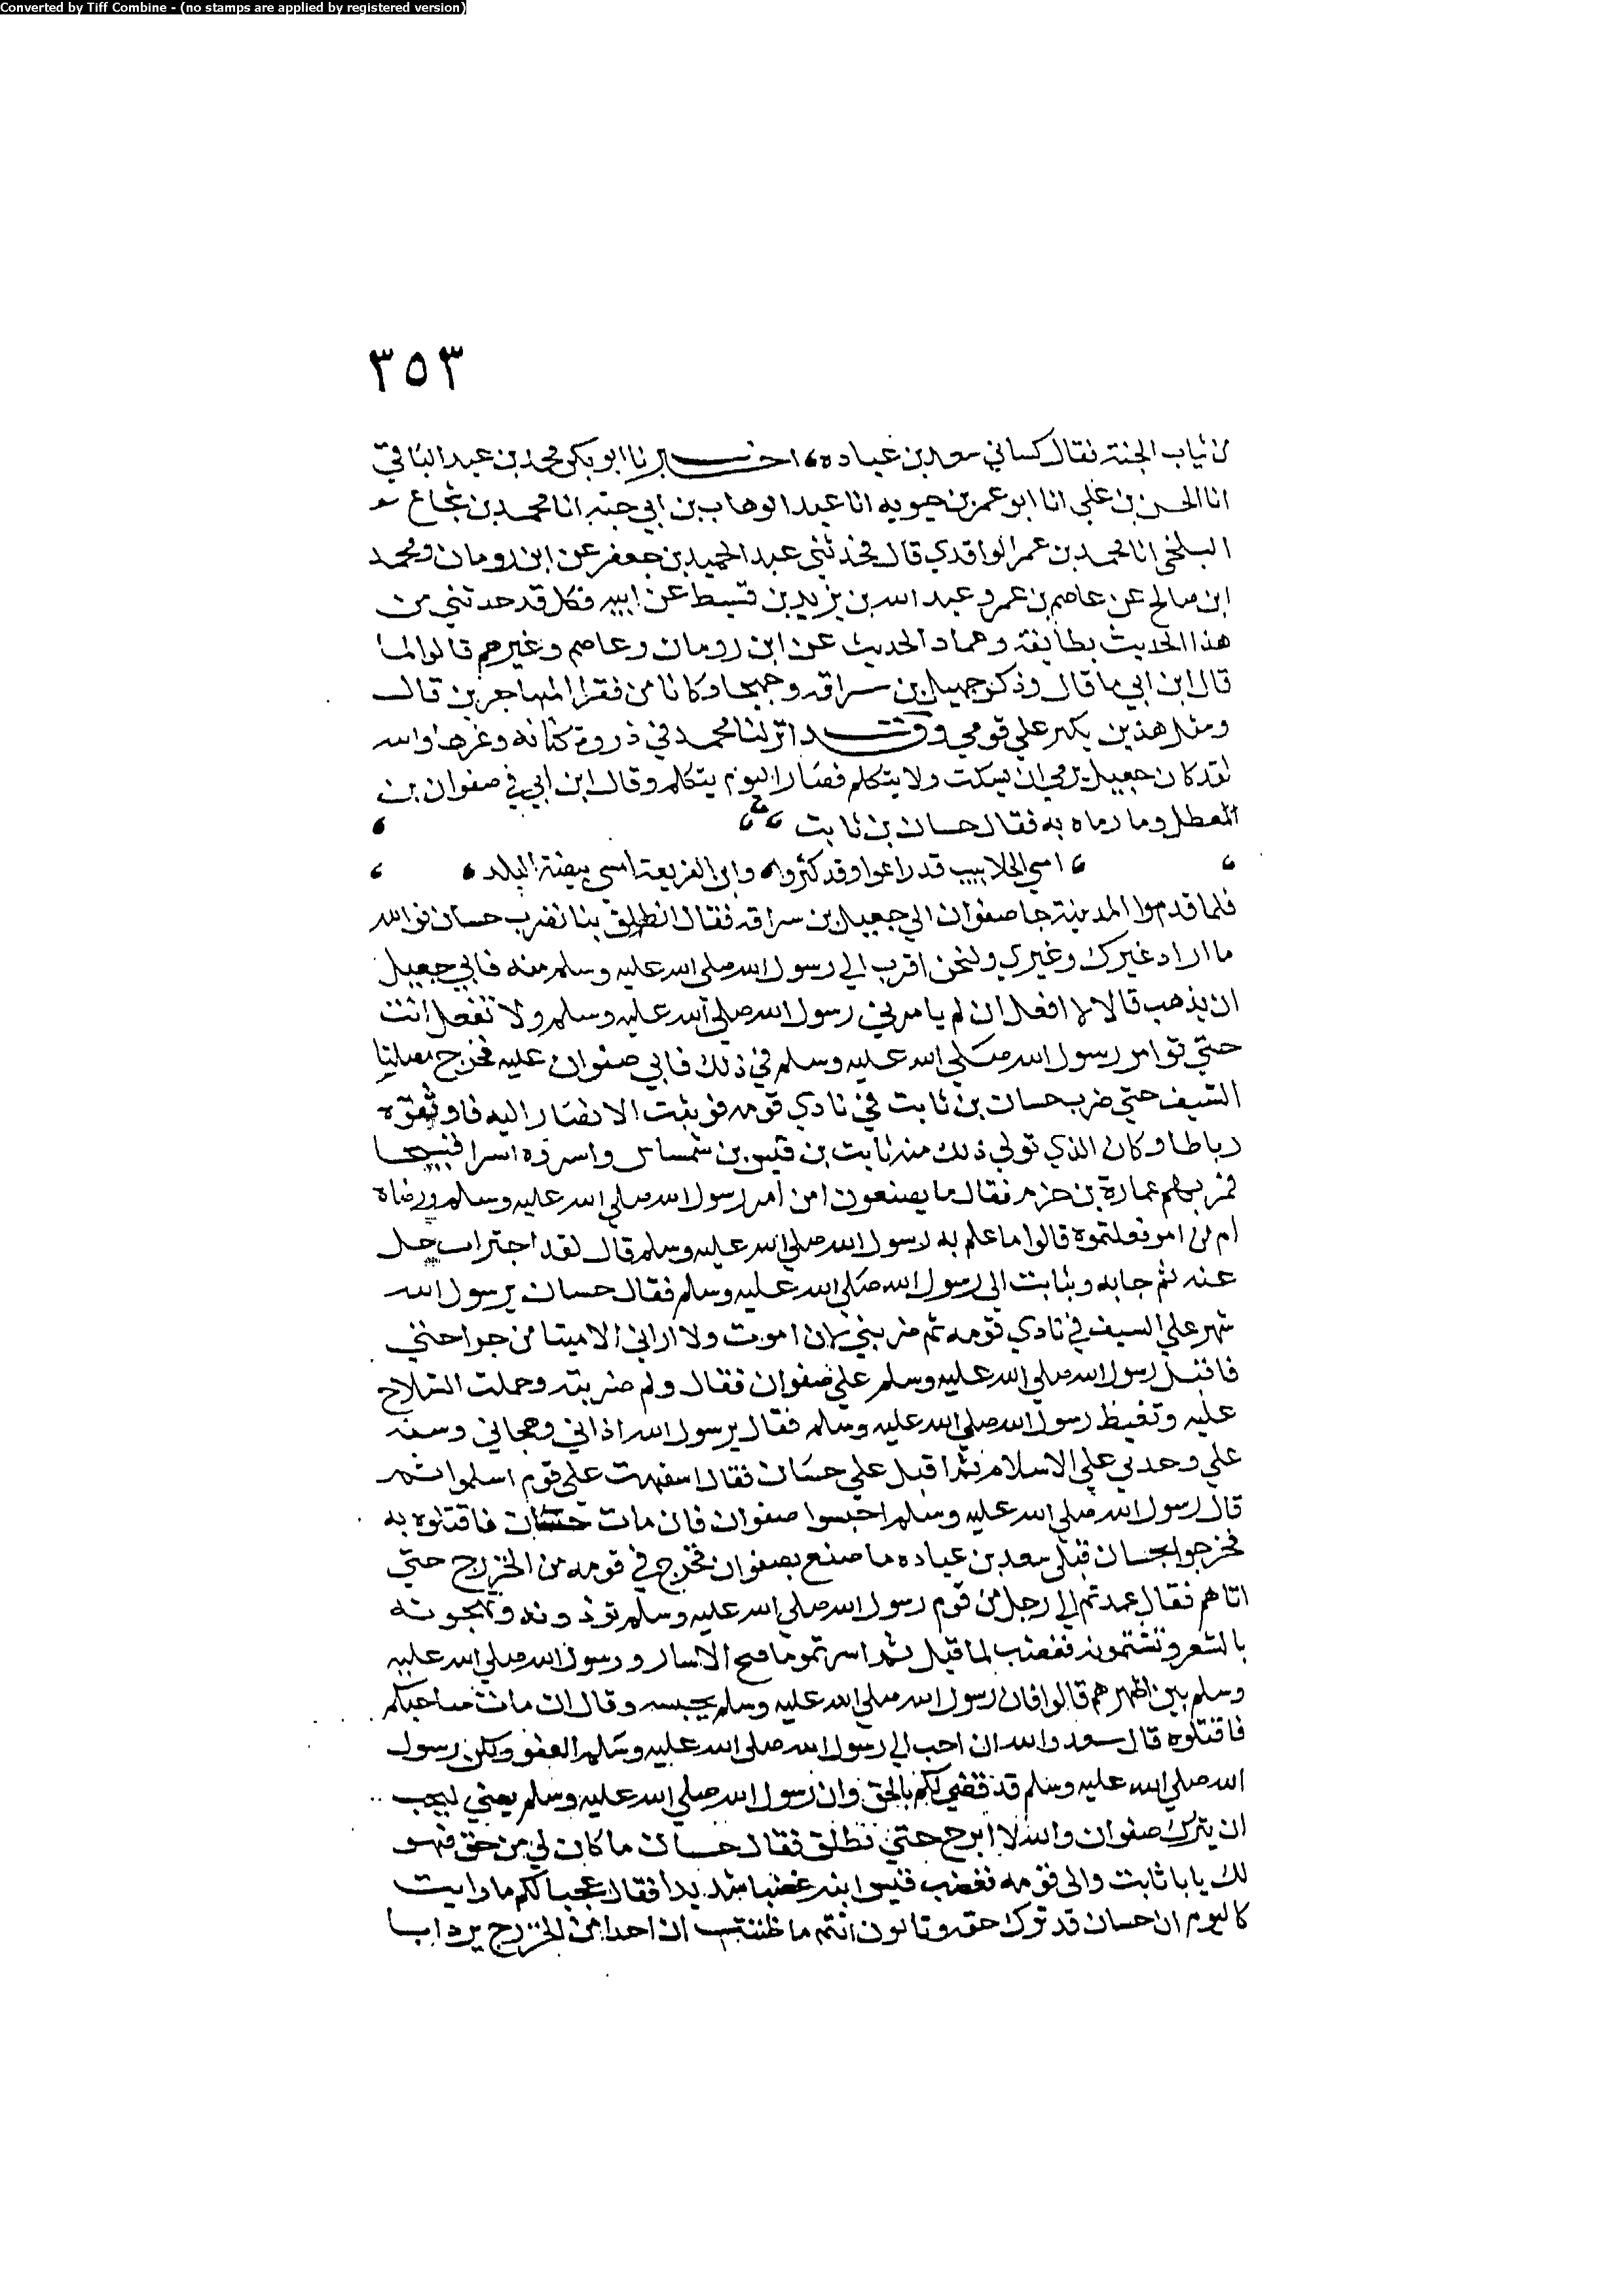 Converted by Tiff Combine - (no stamps are applied by registered version)
٣٥٣
من ثياب الجنة فقال كساني سعد بن عباده اخبرنا ابو بكر محمد بن عبد الباقي
انا الحسن بن علي انا ابو عمر بن حيويه انا عبد الوهاب بن ابي حيه انا محمد بن شجاع
البلخي انا محمد بن عمر الواقدي قال فحدثني عبد الحميد بن جعفر عن ابن رومان ومحمد
ابن صالح عن عاصم بن عمر وعبد الله بن يزيد بن قسيط عن ابيه فكل قد حدثني من
هذا الحديث بطايفة وعماد الحديث عن ابن رومان وعاصم وغيرهم قالوا لما
قال ابن ابي ما قال وذكر جعيل بن سراقه وجهجا وكانا من فقرا المهاجرين قال
ومثل هذين يكثر علي قومي وقد انزلنا محمد في ذروة كنانه وعزها والله
لقد كان جعيل يرضي ان يسكت ولا يتكلم فصار اليوم يتكلم وقال ابن ابي في صفوان بن
المعطل وما رماه به فقال حسان بن ثابت
امسي الجلابيب قد راعوا وقد كثروا وابن الفريعة امسي بيضة البلد
فلما قدموا المدينة جا صفوان الي جعيل بن سراقه فقال انطلق بنا نضرب حسان فوالله
ما اراد غيرك وغيري ولنحن اقرب الي رسول الله صلي الله عليه وسلم منه فابي جعيل
ان يذهب قال لا افعل ان لم يامرني رسول الله صلي الله عليه وسلم ولا تفعل انت
حتي توامر رسول الله صلي الله عليه وسلم في ذلك فابي صفوان عليه فخرج مصلتا
السيف حتي ضرب حسان بن ثابت في نادي قومه فوثبت الانصار اليه فاوثقوه
رباطا وكان الذي تولي ذلك منه ثابت بن قيس بن شماس واسروه اسرا قبيحا
فمر بهم عمارة بن حزم فقال ما يصنعون امن امر رسول الله صلي الله عليه وسلم ورضاه
ام من امر فعلتموه قالوا ما علم به رسول الله صلي الله عليه وسلم قال لقد اجترات خل
عنه ثم جا به وبثابت الي رسول الله صلي الله عليه وسلم فقال حسان يرسول الله
شهر علي السيف في نادي قومه ثم ضربني لان اموت ولا اراني الا ميتا من جواحتي
فاقبل رسول الله صلي الله عليه وسلم علي صفوان فقال ولم ضربته وحملت السلاح
عليه وتغيظ رسول الله صلي الله عليه وسلم فقال يرسول الله اذاني وهجاني وسفه
علي وحدني علي الاسلام ثم اقبل علي حسان فقال اسفهت علي قوم اسلموا ثم
قال رسول الله صلي الله عليه وسلم احبسوا صفوان فان مات حسان فاقتلوه به
فخرجوا بحسان فبلغ سعد بن عباده ما صنع بصفوان فخرج في قومه من الخزرج حتي
اتاهم فقال عمدتم الي رجل من قوم رسول الله صلي الله عليه وسلم توذونه وتهجونه
بالشعر وتشتمونه فغضب لما قيل ثم اسرتموه اقبح الاسار ورسول الله صلي الله عليه
وسلم بين اظهرهم قالوا فان رسول الله صلي الله عليه وسلم يحبسه وقال ان مات صاحبكم
فاقتلوه قال سعد والله ان احب الي رسول الله صلي الله عليه وسلم العفو ولكن رسول
الله صلي الله عليه وسلم قد قضي لكم بالحق وان رسول الله صلي الله عليه وسلم يعني ليحب
ان يترك صفوان والله لا ابرح حتي تطلق فقال حسان ما كان لي من حق فهو
لك يابا ثابت والي قومه فغضب قيس ابنه غضبا شديدا فقال عجبا لكم ما رايت
كاليوم ان حسان قد ترك حقه وتابون انتم ما ظننت ان احدا من الخزرج يرد ابا